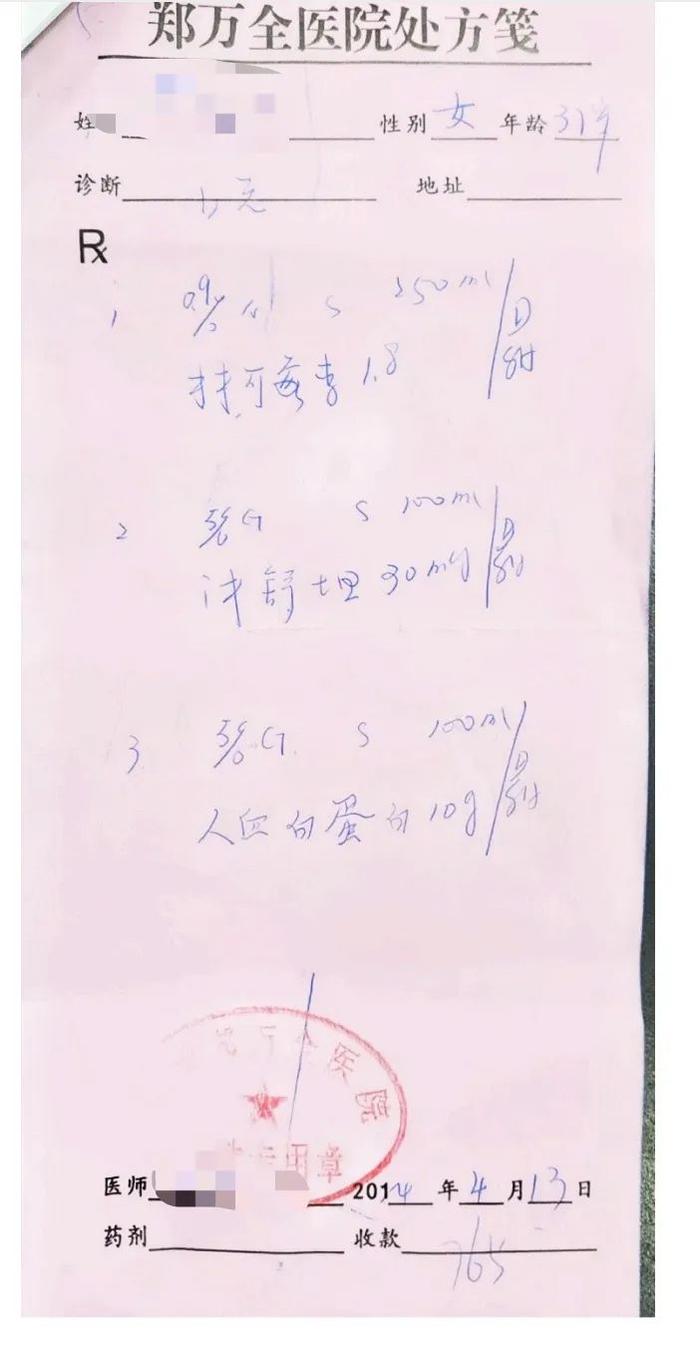 郑万全医院处方笺
姓 性别 女 年龄 31岁
诊断 地址
Rx
1 0.9% S 250ml
扶可 1.8
2 G S 100ml
沐舒坦 30mg
3 G S 100ml
人血白蛋白 10g
万全医院
专用章
医师 2014 年 4 月 13 日
药剂 收款 765